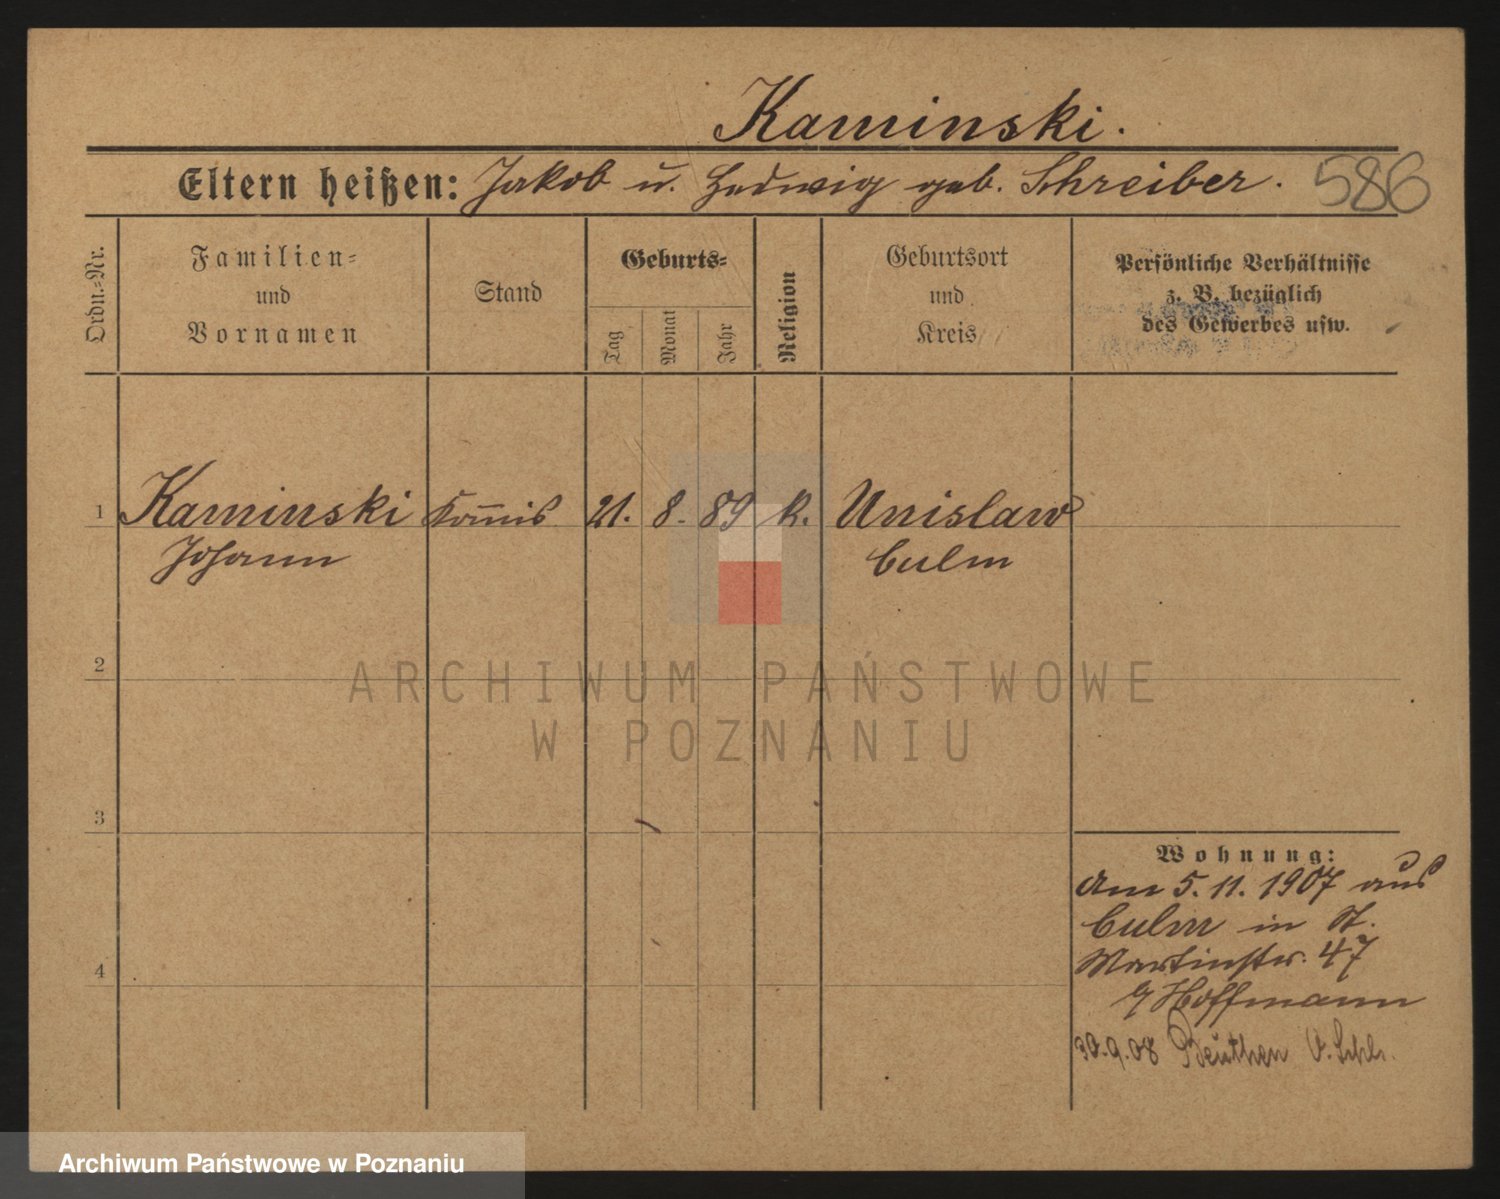 Kaminski.
Eltern heißen: Jakob u. Hedwig geb. Schreiber. 586
Ordn.=Nr.
Familien=
und
Vornamen
Stand
Geburts=
Tag
Monat
Jahr
Religion
Geburtsort
und
Kreis
Persönliche Verhältnisse
z. B. bezüglich
des Gewerbes usw.
1 Kaminski Kom̅is 21. 8. 89 k. Unislaw
Johann Culm
2
ARCHIWUM PAŃSTWOWE
W POZNANIU
3
Wohnung:
Am 5. 11. 1907 aus
Culm in St.
Martinstr. 47
4
Hoffmann
30.9.08 Beuthen O. Schl.
Archiwum Państwowe w Poznaniu